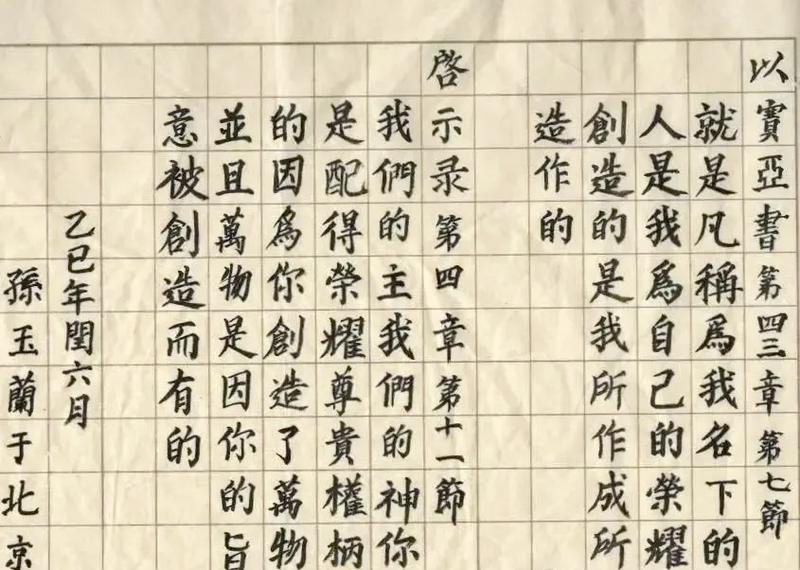 以賽亞書第四三章第七節
就是凡稱為我名下的
人是我為自己的榮耀
創造的是我所作成所
造作的
啓示录第四章第十一節
我們的主我們的神你
是配得榮耀尊貴權柄
的因為你創造了萬物
並且萬物是因你的旨
意被創造而有的
乙巳年閏六月
孫玉蘭于北京